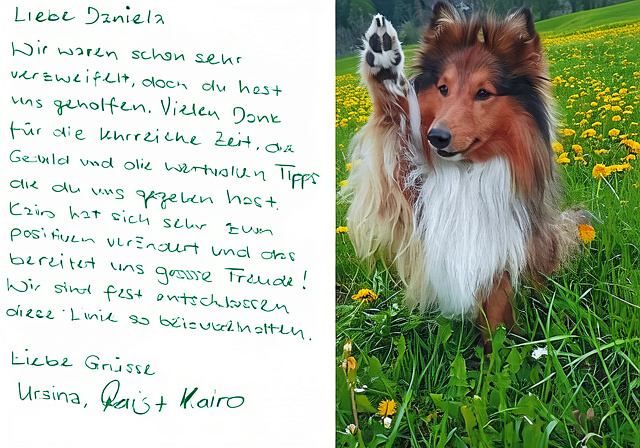 Liebe Daniela
Wir waren schon sehr
verzweifelt, doch du hast
uns geholfen. Vielen Dank
für die lehrreiche Zeit, die
Geduld und die wertvollen Tipps
die du uns gegeben hast.
Kairo hat sich sehr zum
positiven verändert und das
bereitet uns grosse Freude!
Wir sind fest entschlossen
diese Linie so beizubehalten.
Liebe Grüsse
Ursina, + Kairo